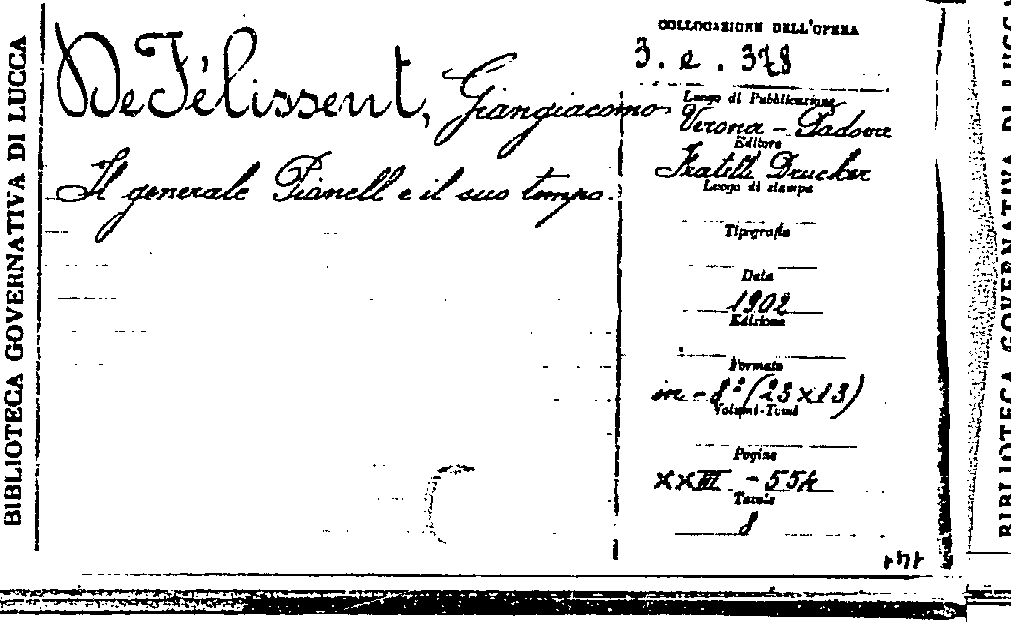 BIBLIOTECA GOVERNATIVA DI LUCCA
De Félissent, Giangiacomo
Il generale Pianell e il suo tempo.
COLLOCAZIONE DELL'OPERA
3. e. 378
Luogo di Pubblicazione
Verona - Padova
Editore
Fratelli Drucker
Luogo di stampa
Tipografia
Data
1902
Edizione
Formato
in - 8º (23x13)
Volumi-Tomi
Pagine
XXIII - 554
Tavole
8
BIBLIOTECA GOVERNATIVA DI LUCCA